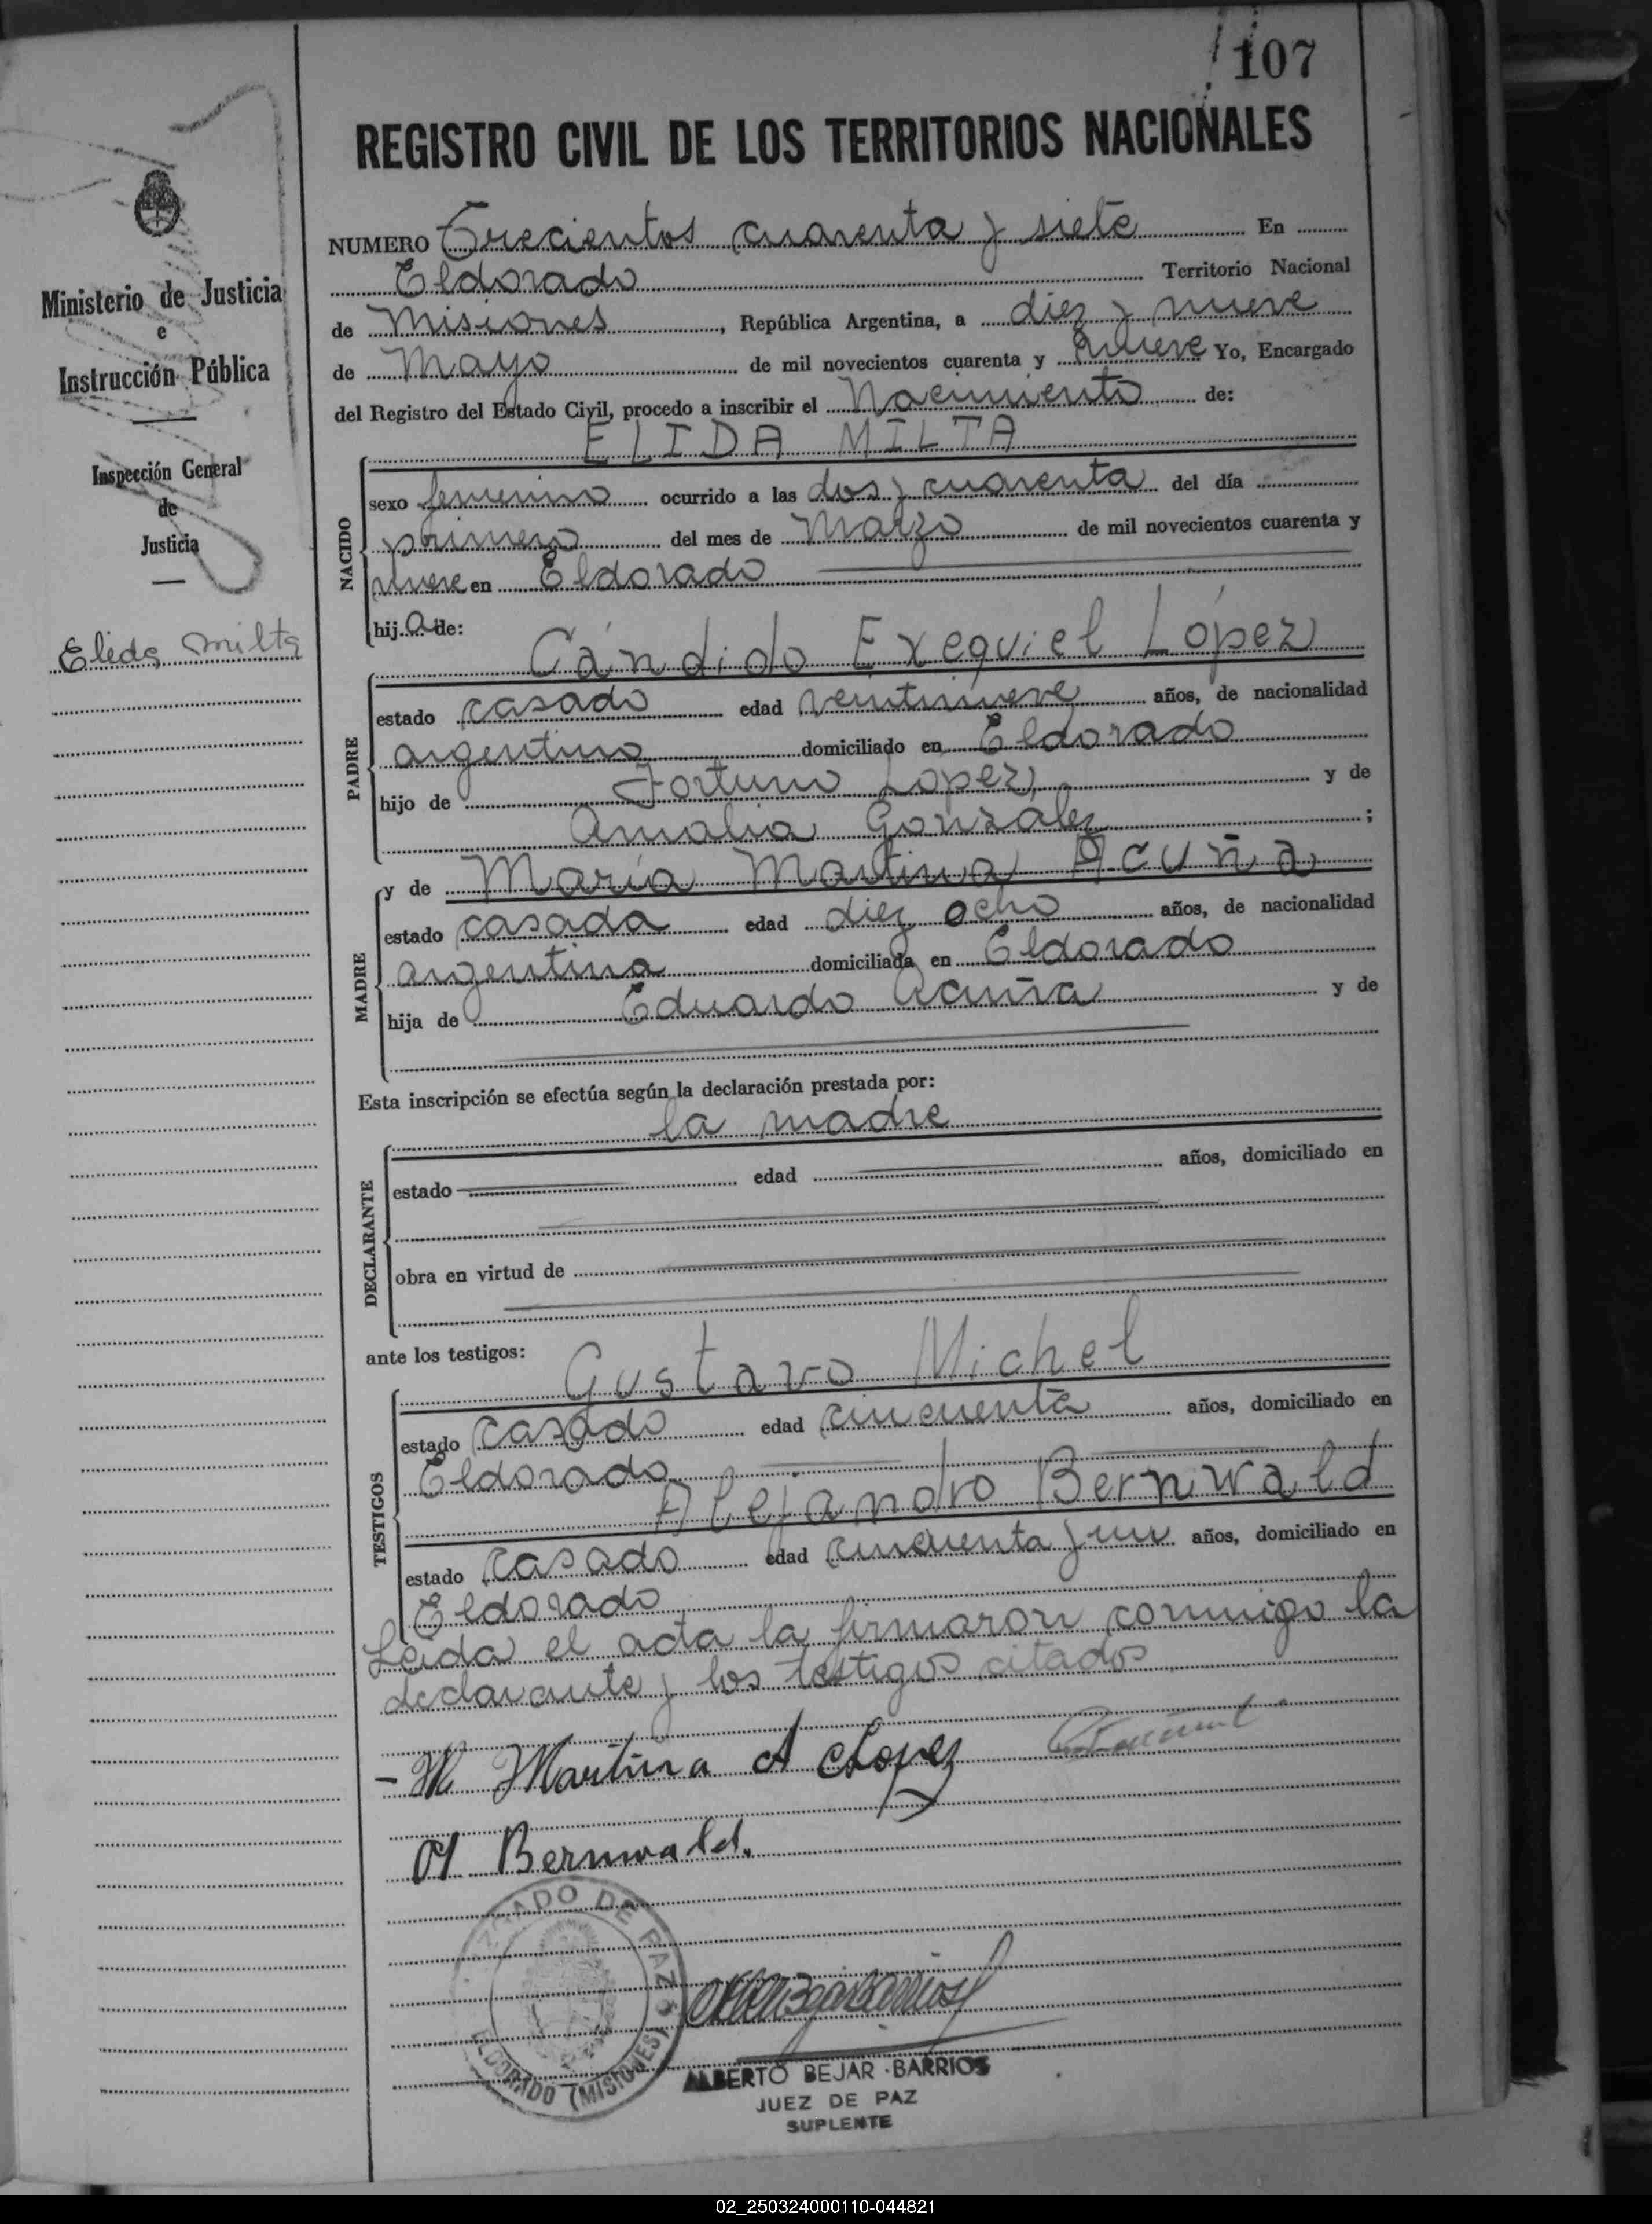 107
REGISTRO CIVIL DE LOS TERRITORIOS NACIONALES
Ministerio de Justicia
e
Instrucción Pública
Inspección General
de
Justicia
Elida Milta
NUMERO Trecientos cuarenta y siete En
Eldorado Territorio Nacional
de Misiones, República Argentina, a diez y nueve
de Mayo de mil novecientos cuarenta y nueve Yo, Encargado
del Registro del Estado Civil, procedo a inscribir el Nacimiento de:
ELIDA MILTA
NACIDO
sexo femenino ocurrido a las dos y cuarenta del día
primero del mes de Marzo de mil novecientos cuarenta y
nueve en Eldorado
hija de:
Cándido Exequiel López
PADRE
estado casado edad veintinueve años, de nacionalidad
argentino domiciliado en Eldorado
hijo de Fortuno López, y de
Amalia González ;
MADRE
y de María Martina Acuña
estado casada edad diez ocho años, de nacionalidad
argentina domiciliada en Eldorado
hija de Eduardo Acuña y de
Esta inscripción se efectúa según la declaración prestada por:
la madre
DECLARANTE
estado edad años, domiciliado en
obra en virtud de
ante los testigos:
Gustavo Michel
TESTIGOS
estado casado edad cincuenta años, domiciliado en
Eldorado
Alejandro Bernwald
estado casado edad cincuenta y un años, domiciliado en
Eldorado
Leida el acta la firmaron conmigo la
declarante y los testigos citados
- M Martina A Lopez
A Bernwald.
JUZGADO DE PAZ
ELDORADO (MISIONES)
ALBERTO BEJAR BARRIOS
JUEZ DE PAZ
SUPLENTE
02_250324000110-044821